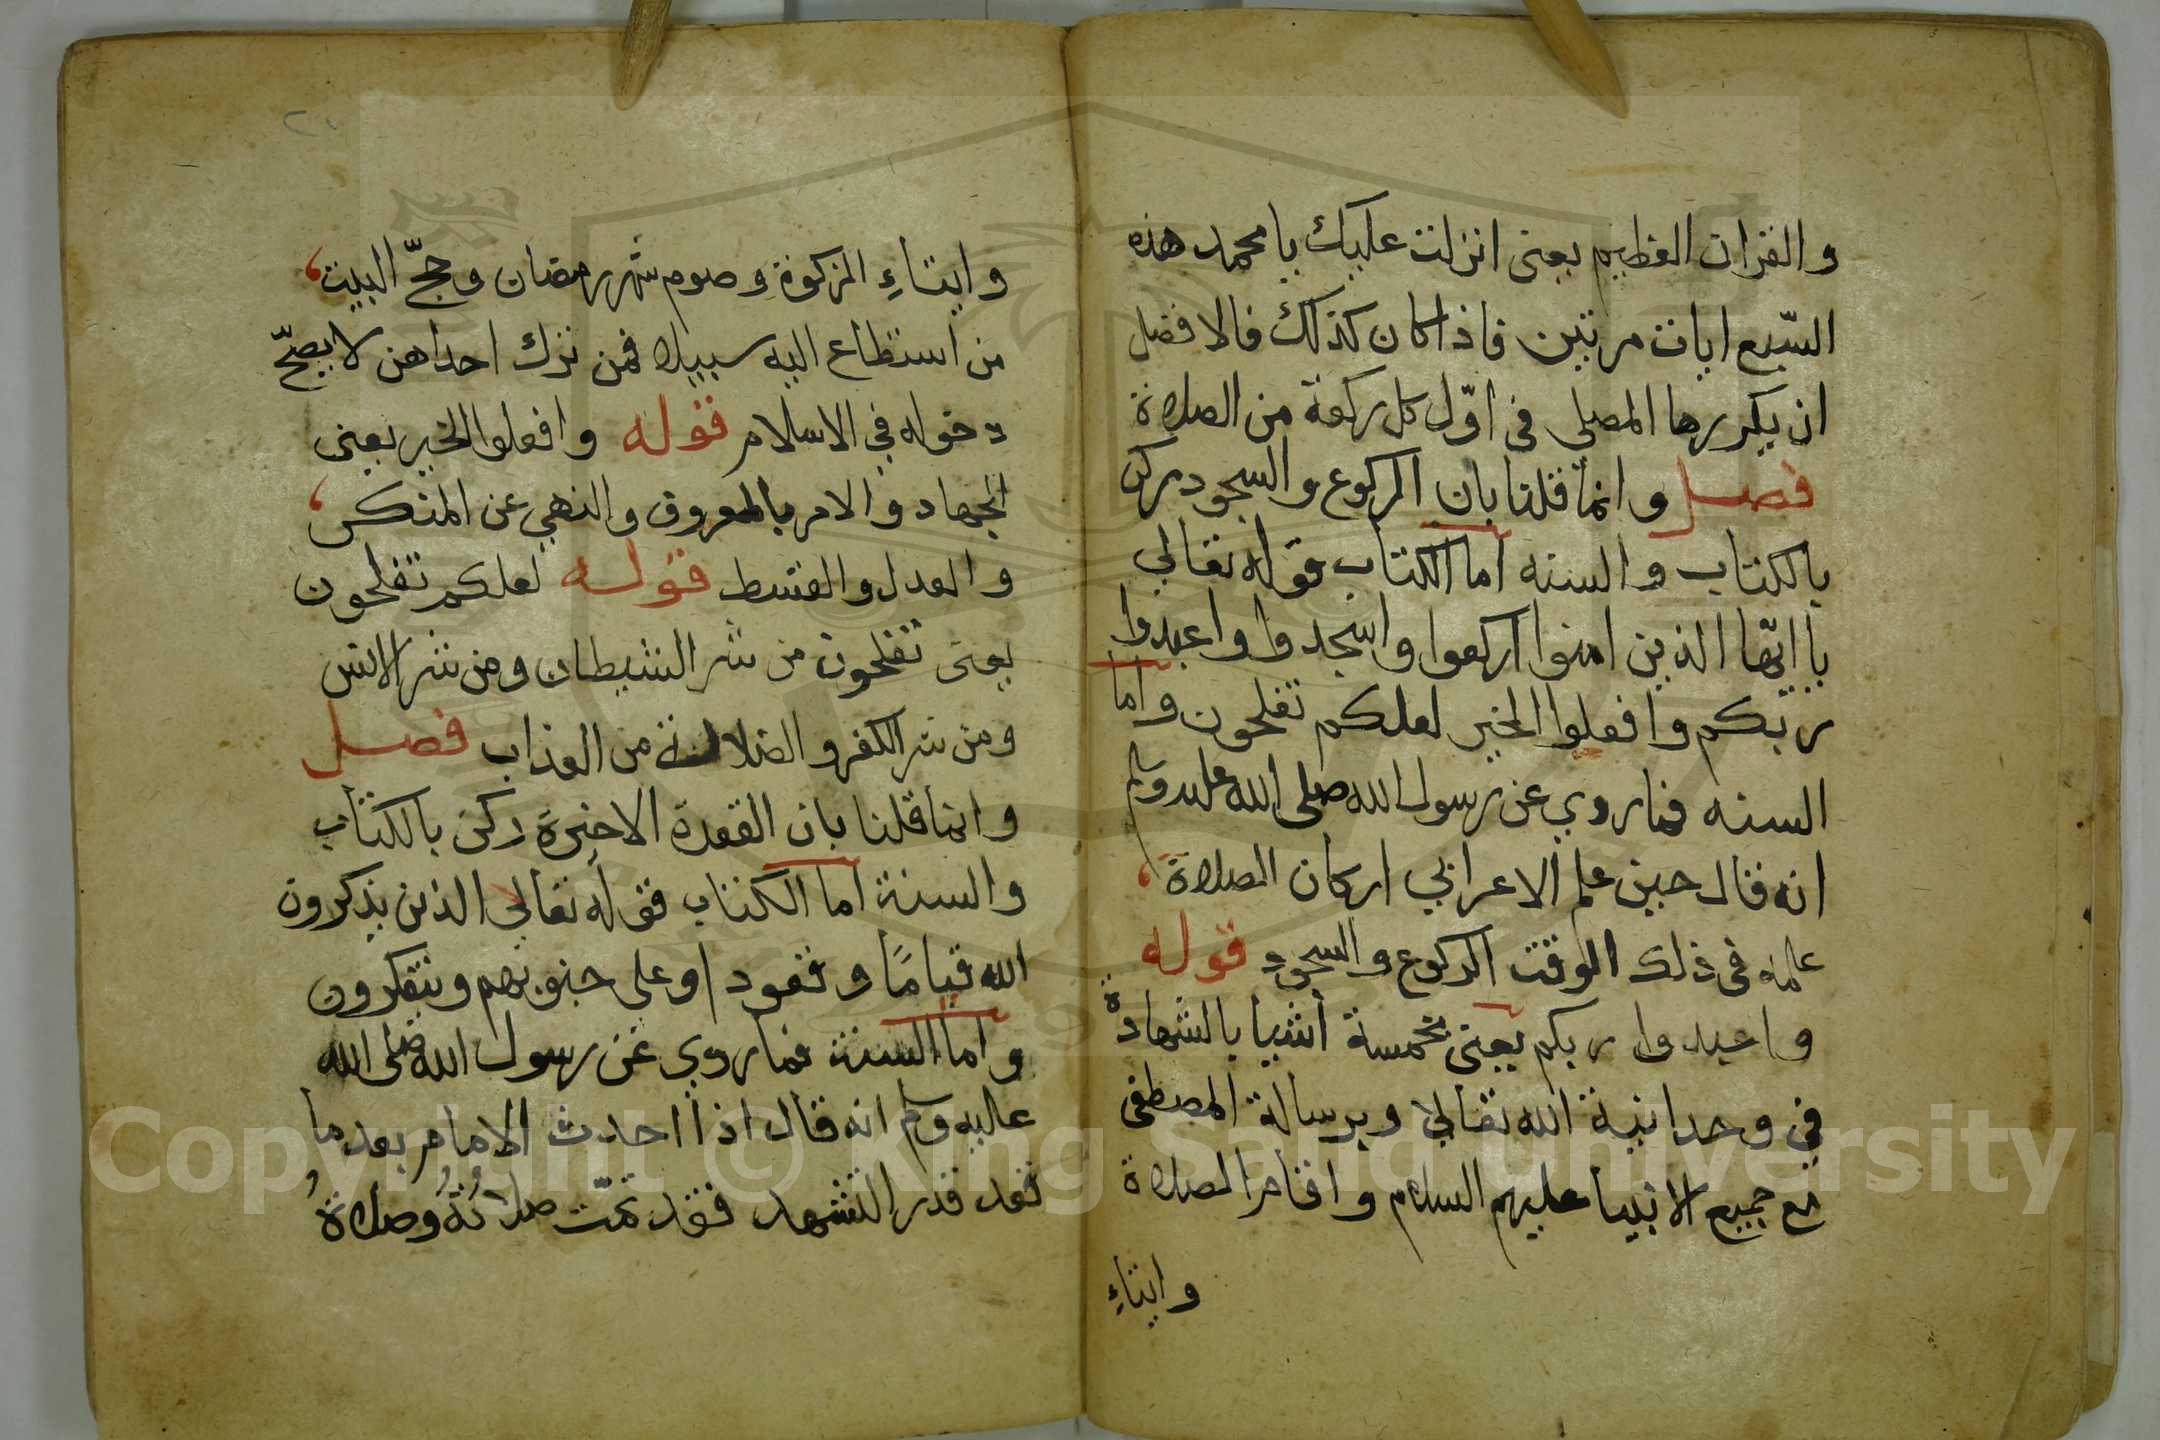 والقران العظيم يعني انزلت عليك يا محمد هذه
السّبع ايات مرتين فاذا كان كذلك فالافضل
ان يكررها المصلي في اوّل كل ركعة من الصلاة
فصل وانما قلنا بان الركوع والسجود ركن
بالكتاب والسنه اما الكتاب قوله تعالي
يا ايّها الذين امنوا اركعوا واسجدوا واعبدوا
ربكم وافعلوا الخير لعلكم تفلحون واما
السنه فما روي عن رسول الله صلى الله عليه وسلم
انه قال حين علم الاعرابي اركان الصلاة
علمه في ذلك الوقت الركوع والسجود قوله
واعبدوا ربكم يعني بخمسة أشيا بالشهادة
في وحدانية الله تعالي وبرسالة المصطفى
مع جميع الانبيا عليهم السلام واقام الصلاة
وايتاءِ
٢٠
وايتاءِ الزكوة وصوم شهر رمضان وحجّ البيت
من استطاع اليه سبيلا فمن ترك احداهن لا يصحّ
دخوله في الاسلام قوله وافعلوا الخير يعني
الجهاد والامر بالمعروف والنهي عن المنكر
والعدل والقسط قوله لعلكم تفلحون
يعني تفلحون من شر الشيطان ومن شر الانس
ومن شر الكفر والضلالة من العذاب فصل
وانما قلنا بان القعدة الاخيرة ركن بالكتاب
والسنة اما الكتاب فقوله تعالي الذين يذكرون
الله قيامًا وقعودا وعلى جنوبهم ويتفكرون
واما السنة فما روي عن رسول الله صلى الله
عليه وسلم انه قال اذا احدث الامام بعد ما
قعد قدر التشهد فقد تمّت صلاتُهُ وصلاةُ
Copyright © King Saud University